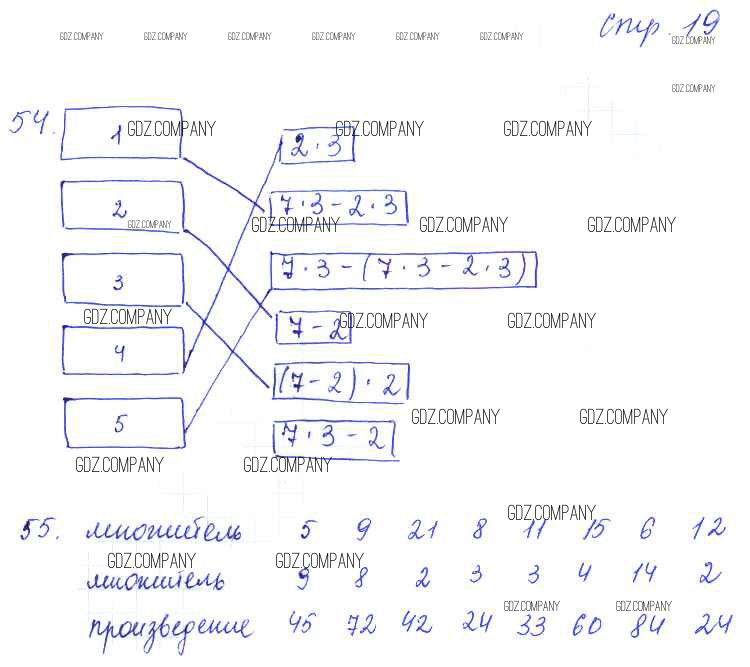 стр. 19
GDZ.COMPANY GDZ.COMPANY GDZ.COMPANY GDZ.COMPANY GDZ.COMPANY GDZ.COMPANY GDZ.COMPANY
GDZ.COMPANY
54. 1 GDZ.COMPANY GDZ.COMPANY GDZ.COMPANY
2 · 3
2 7 · 3 - 2 · 3
GDZ.COMPANY GDZ.COMPANY GDZ.COMPANY GDZ.COMPANY
3 7 · 3 - (7 · 3 - 2 · 3)
GDZ.COMPANY GDZ.COMPANY GDZ.COMPANY
7 - 2
4
(7 - 2) · 2
5 GDZ.COMPANY GDZ.COMPANY
7 · 3 - 2
GDZ.COMPANY GDZ.COMPANY
GDZ.COMPANY
55. множитель 5 9 21 8 11 15 6 12
GDZ.COMPANY GDZ.COMPANY
множитель 9 8 2 3 3 4 14 2
GDZ.COMPANY GDZ.COMPANY
произведение 45 72 42 24 33 60 84 24